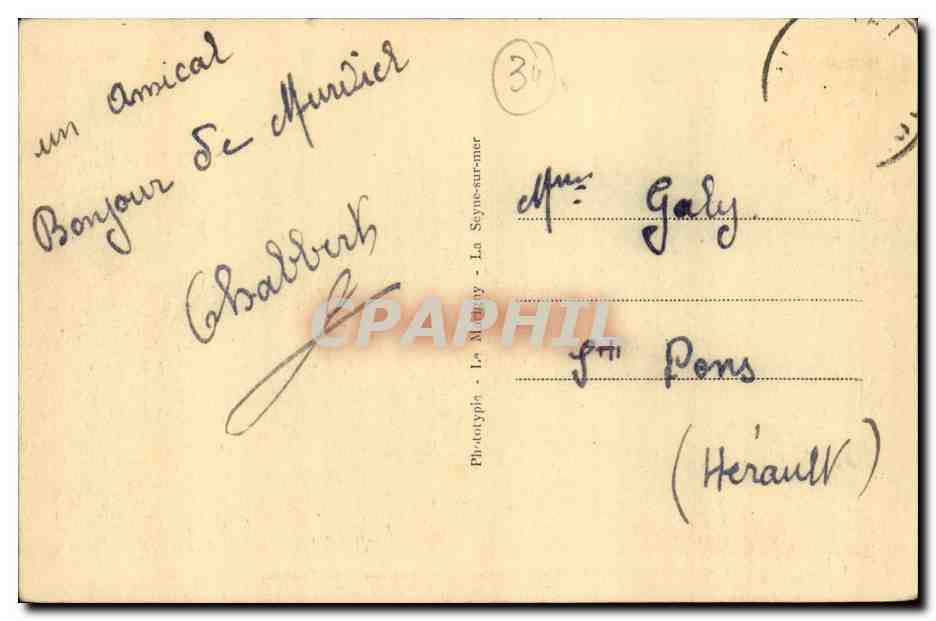 un amical
Bonjour de Murviel
Chabbert
34
Phototypie - Le Marigny - La Seyne-sur-mer
Mme Galy.
St Pons
(Hérault)
CPAPHIL